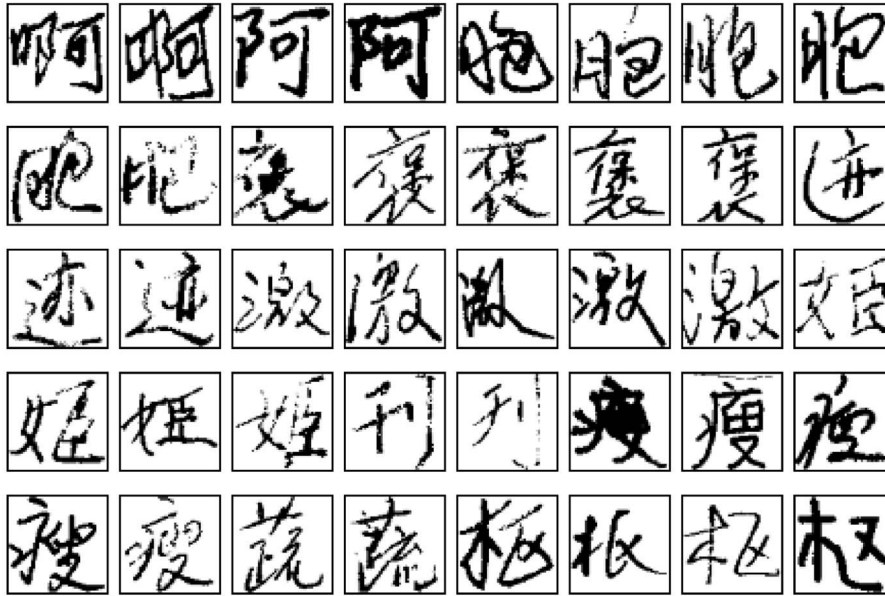 啊 啊 阿 阿 胞 胞 胞 胞
胞 胞 褒 褒 褒 褒 褒 迹
迹 迹 激 激 激 激 激 姬
姬 姬 姬 刊 刊 瘦 瘦 瘦
瘦 瘦 蔬 蔬 枢 枢 枢 枢